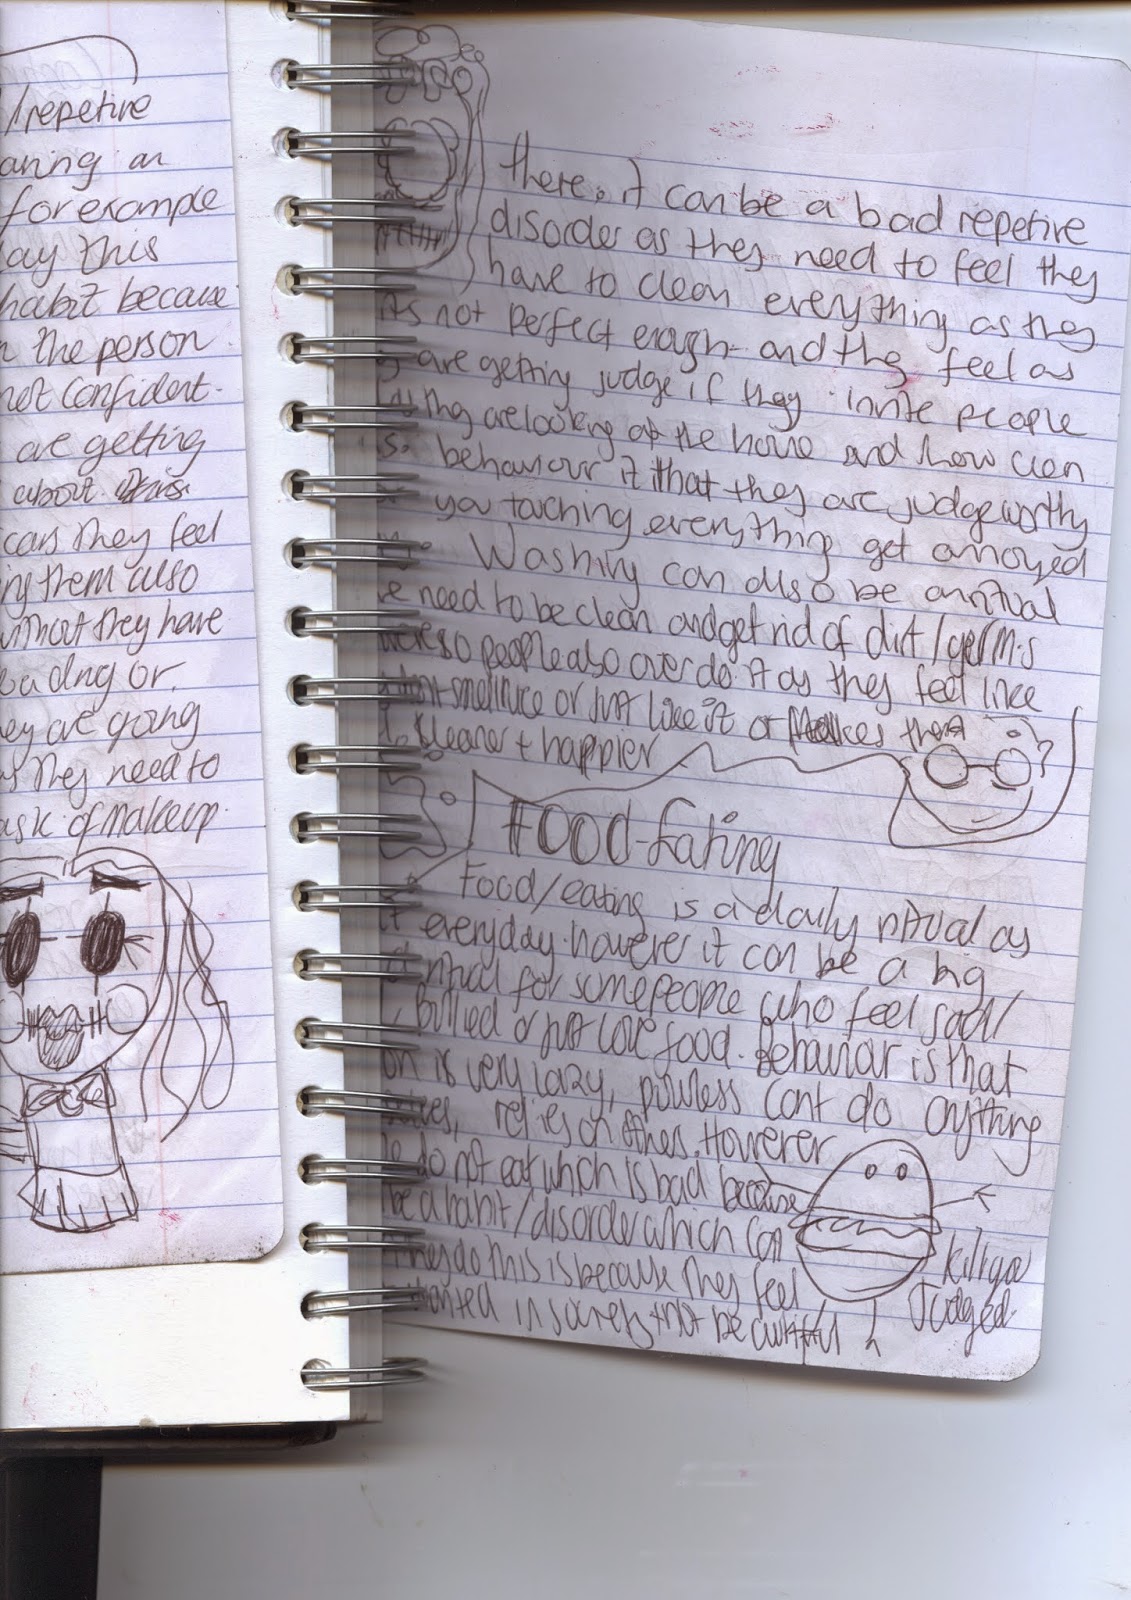 /repetive
aning an
for example
ay this
habit because
n the person
not confident.
are getting
about
cars they feel
ng them also
without they have
or.
hey are going
as they need to
ask of makeup.
there. it can be a bad repetive
disorder as they need to feel they
have to clean everything as they
its not perfect enough and the feel as
are getting judge if they invite people
are looking at the house and how clean
behaviour it that they are judgeworthy
you touching everything get annoyed
Washing can also be a ritual
need to be clean and get rid of dirt/germs
people also over do it as they feel like
or just like it or Makes them
cleaner + happier
FOOD-Eating
Food/eating is a daily ritual as
everyday. however it can be a big
ritual for some people who feel sad/
bullied or just love food. Behaviour is that
on is very lazy, cant do anything
relies on others. However
do not eat which is bad because
be a habit/disorder which can
They do this is because they feel
in society + not beautiful
Judged.